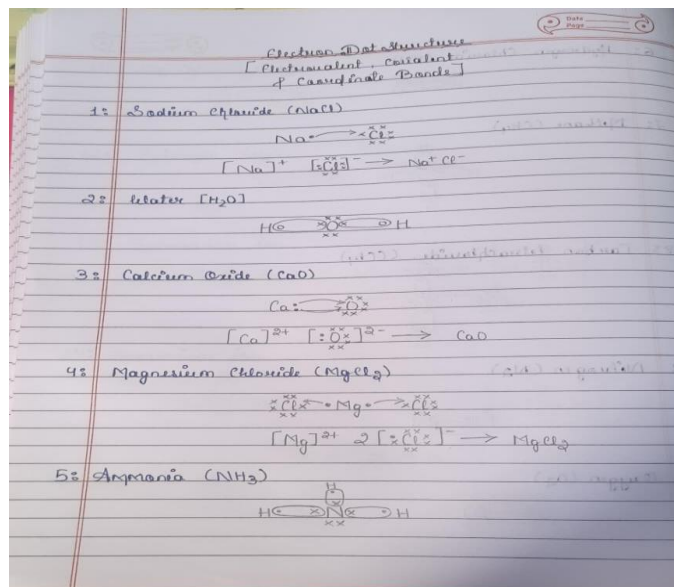 Date
Page
Electron Dot Structure
[Electrovalent, Covalent
& Coordinate Bonds]
1: Sodium Chloride (NaCl)
Na Cl
[Na]⁺ [Cl]⁻ → Na⁺ Cl⁻
2: Water [H₂O]
H O H
3: Calcium Oxide (CaO)
Ca: O
[Ca]²⁺ [:O]²⁻ → CaO
4: Magnesium Chloride (MgCl₂)
Cl Mg Cl
[Mg]²⁺ 2[Cl]⁻ → MgCl₂
5: Ammonia (NH₃)
H
H N H